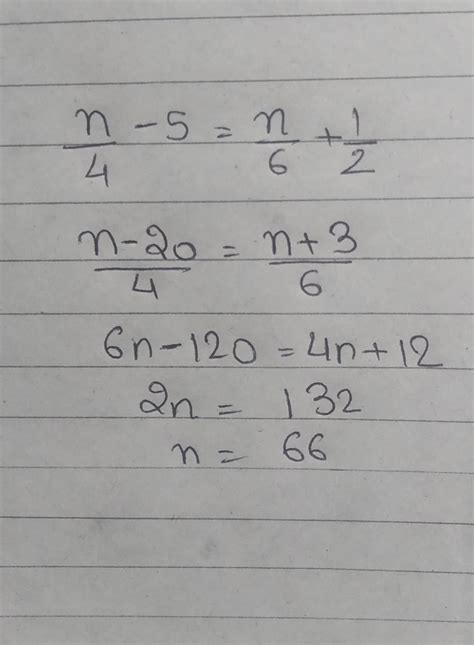 n/4 - 5 = n/6 + 1/2
n-20/4 = n+3/6
6n-120 = 4n+12
2n = 132
n = 66